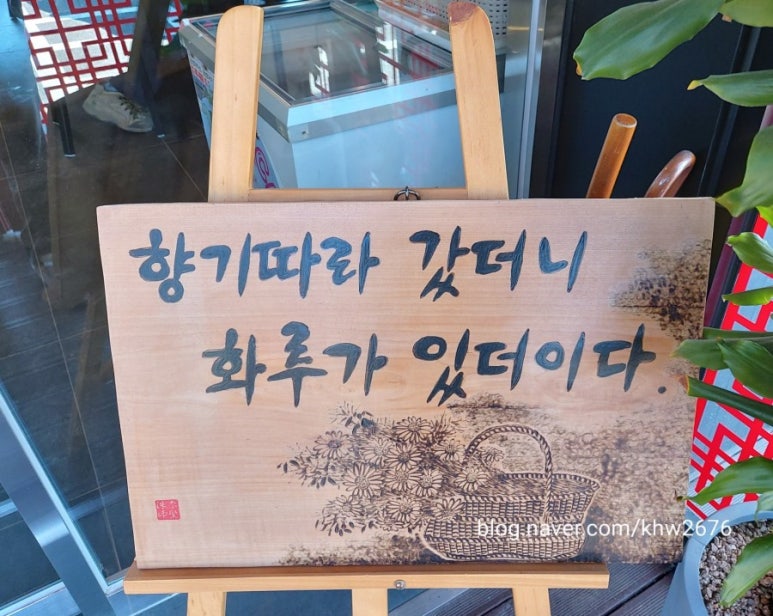 향기따라 갔더니
화루가 있더이다.
blog.naver.com/khw2676